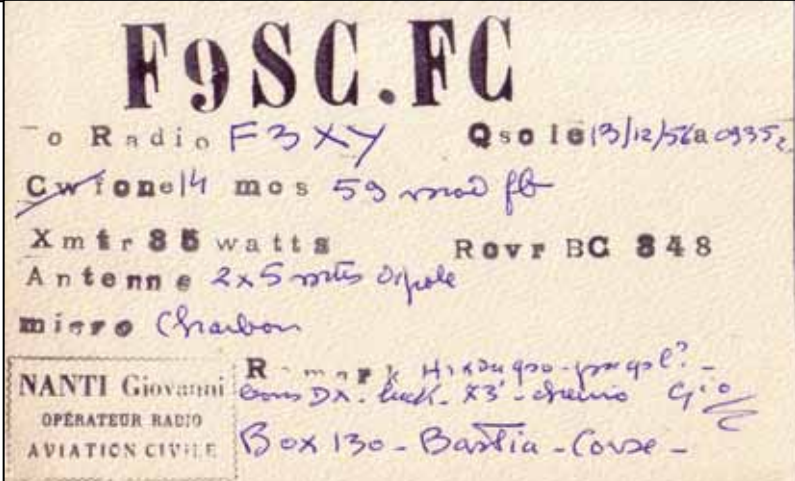 F9SC.FC
To Radio F3XY Qso le 13/12/56 a 0935z
Cw fone 14 mcs 59 mod fb
Xmtr 35 watts Rcvr BC 348
Antenne 2x5 mts Dipole
micro Charbon
Remark qso - pse qsl? -
NANTI Giovanni bons DX. luck. 73' - cheerio Gio
OPÉRATEUR RADIO
AVIATION CIVILE Box 130 - Bastia - Corse -